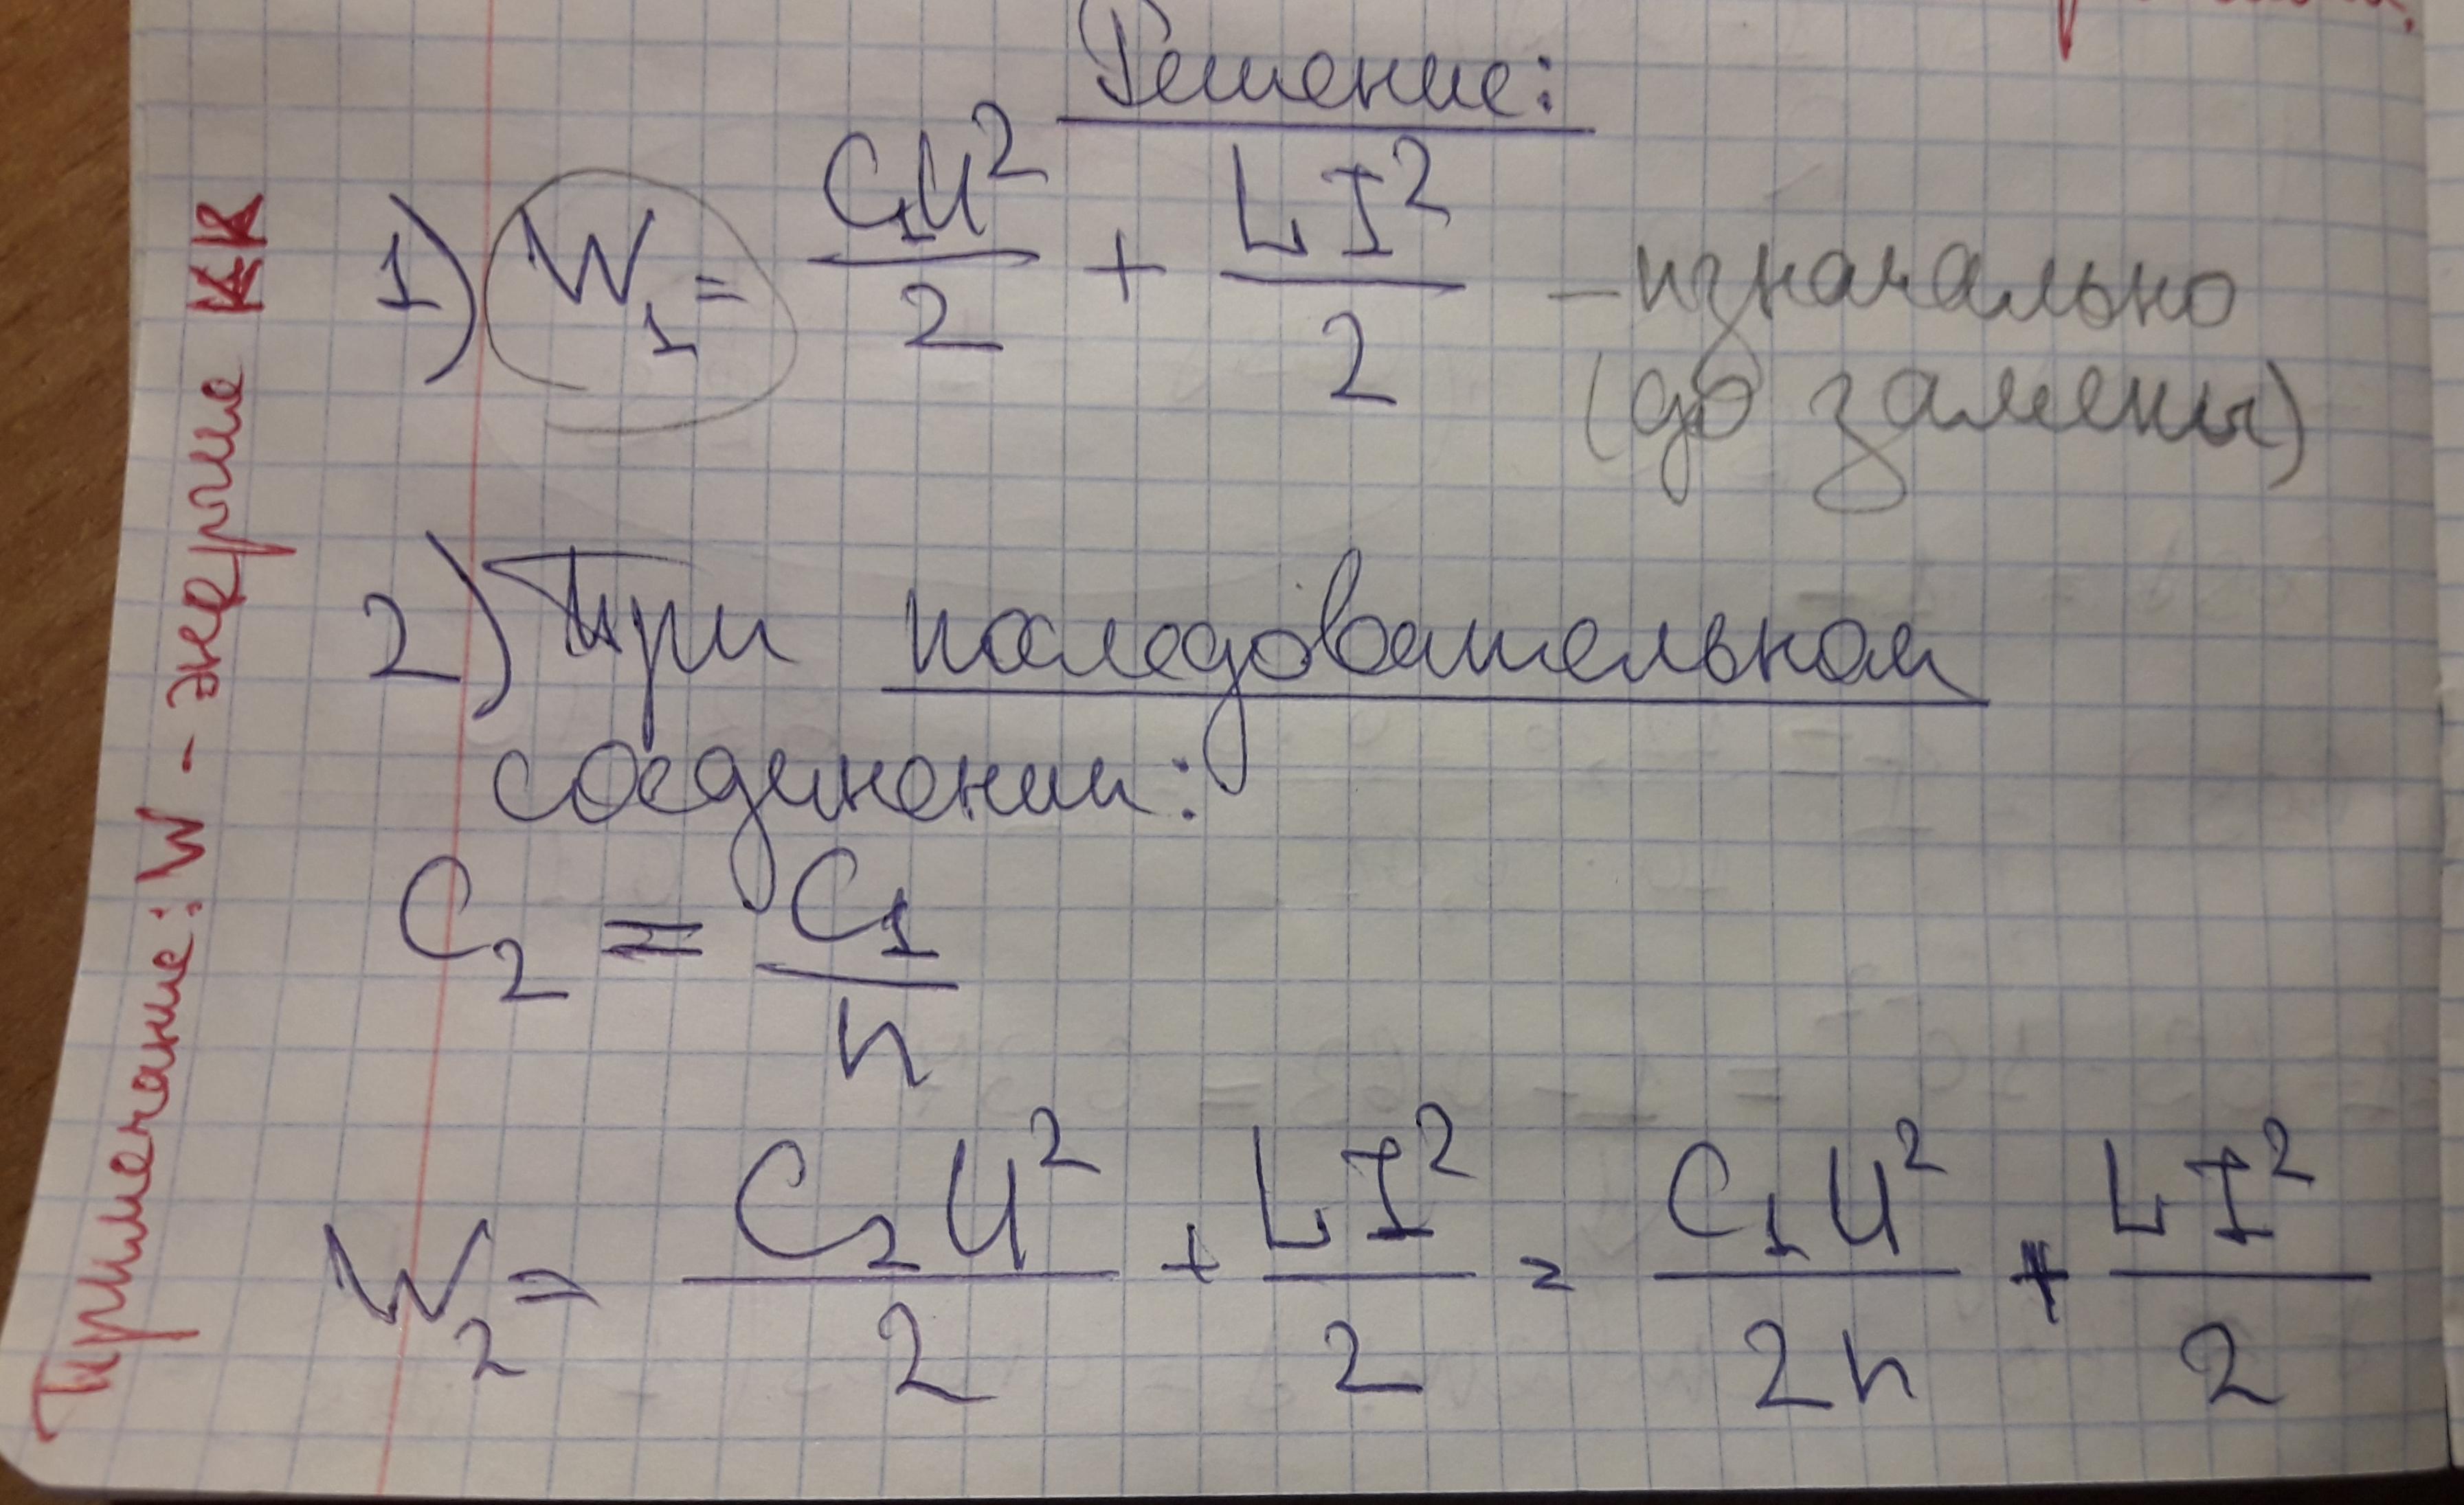 Решение:
1) W₁ = C₁U²/2 + LI²/2 – изначально
(до замены)
2) При последовательном
соединении:
C₂ = C₁/n
W₂ = C₂U²/2 + LI²/2 = C₁U²/2n + LI²/2
Примечание: W – энергие КК